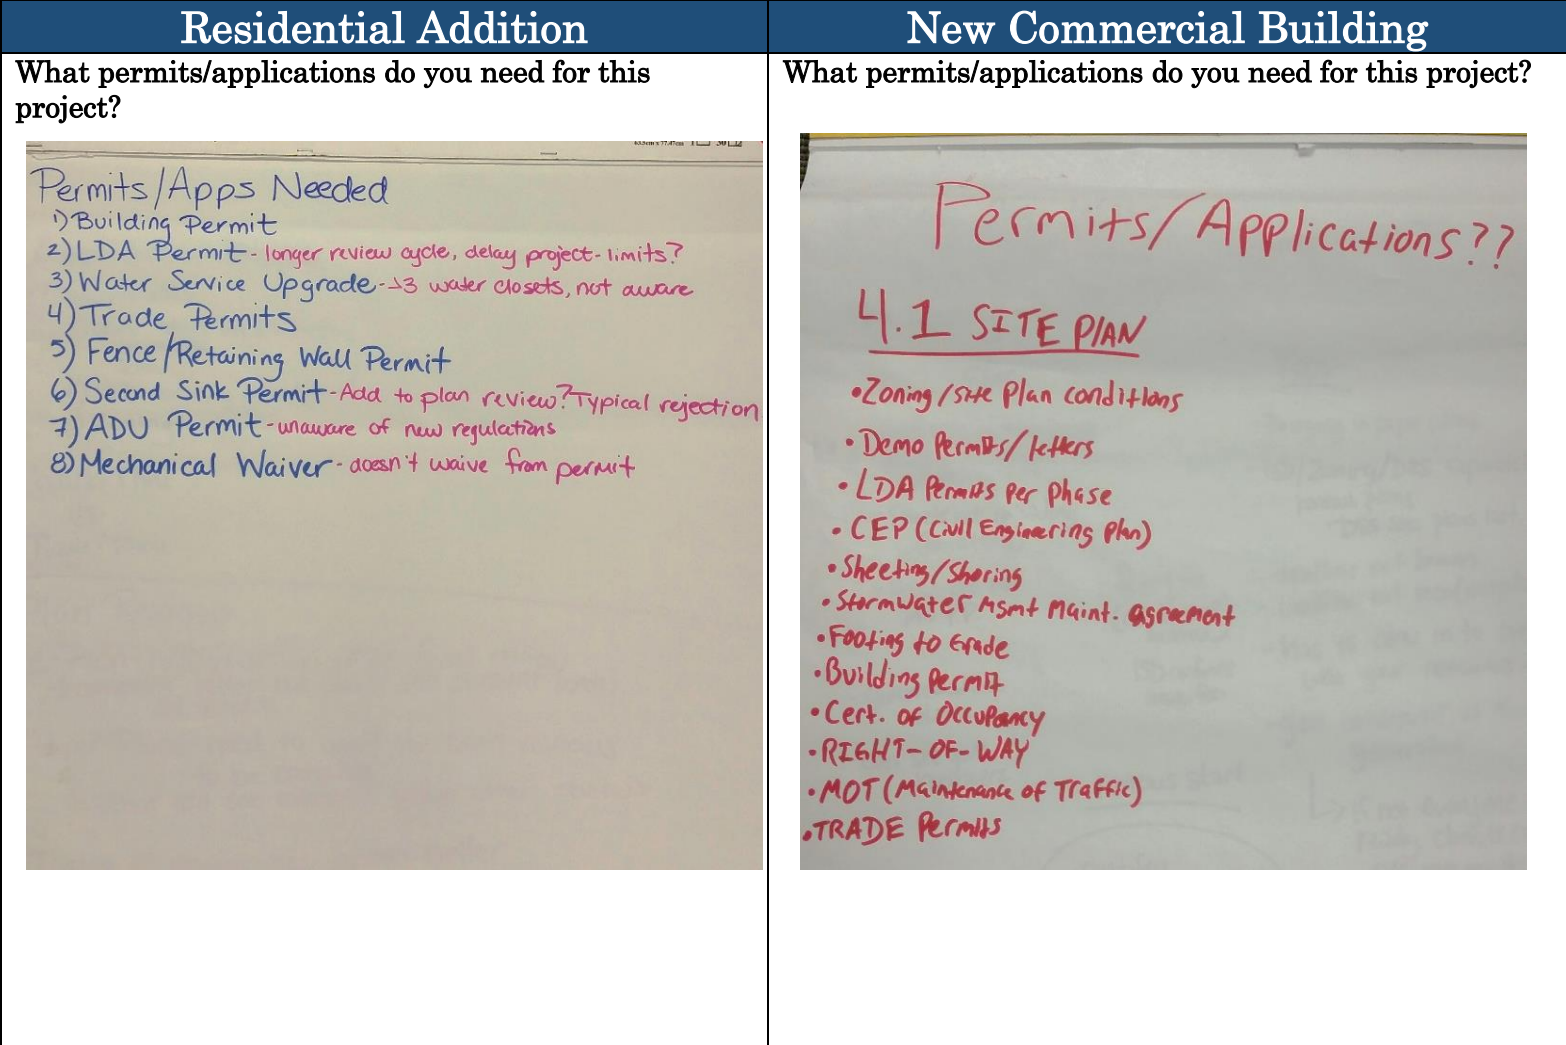 Residential Addition
What permits/applications do you need for this
project?
Permits/Apps Needed
1) Building Permit
2) LDA Permit - longer review cycle, delay project - limits?
3) Water Service Upgrade - →3 water closets, not aware
4) Trade Permits
5) Fence/Retaining Wall Permit
6) Second Sink Permit - Add to plan review? Typical rejection
7) ADU Permit - unaware of new regulations
8) Mechanical Waiver - doesn't waive from permit
New Commercial Building
What permits/applications do you need for this project?
Permits/Applications??
4.1 SITE PLAN
• Zoning/site plan conditions
• Demo Permits/letters
• LDA Permits per phase
• CEP (Civil Engineering Plan)
• Sheeting/Shoring
• Stormwater Mgmt Maint. agreement
• Footing to Grade
• Building Permit
• Cert. of Occupancy
• RIGHT-OF-WAY
• MOT (Maintenance of Traffic)
• TRADE Permits